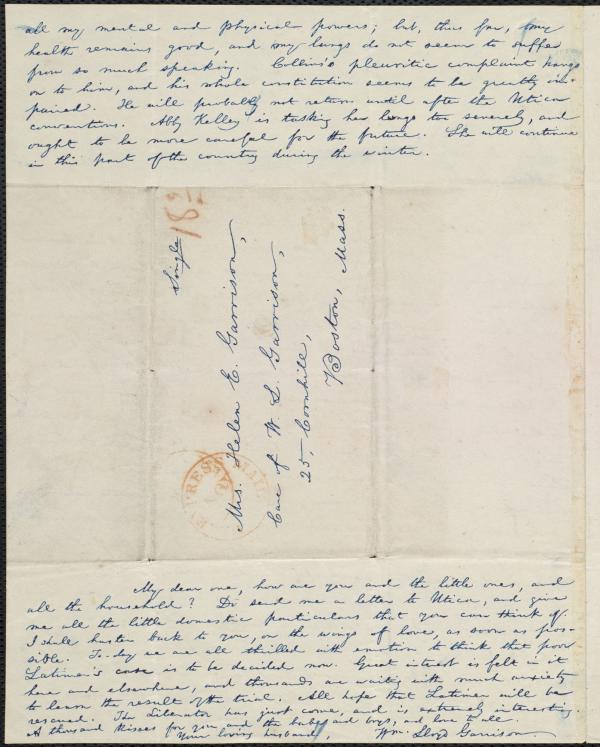 all my mental and physical powers; but, thus far, my
health remains good, and my lungs do not seem to suffer
from so much speaking. Collins's pleuritic complaint hangs
on to him, and his whole constitution seems to be greatly im-
paired. He will probably not return until after the Utica
conventions. Abby Kelley is tasking her lungs too severely, and
ought to be more careful for the future. She will continue
in this part of the country during the winter.
Single
Mrs. Helen E. Garrison,
Care of W. L. Garrison,
25, Cornhill,
Boston, Mass.
EXPRESS MAIL
My dear one, how are you and the little ones, and
all the household? Do send me a letter to Utica, and give
me all the little domestic particulars that you can think of.
I shall hasten back to you, on the wings of love, as soon as pos-
sible. To-day we are all thrilled with emotion to think that poor
Latimer's case is to be decided now. Great interest is felt in it
here and elsewhere, and thousands are waiting with much anxiety
to learn the result of the trial. All hope that Latimer will be
rescued. The Liberator has just come, and is extremely interesting.
A thousand kisses for you, and the babe and boys, and love to all.
Your loving husband,
Wm. Lloyd Garrison.